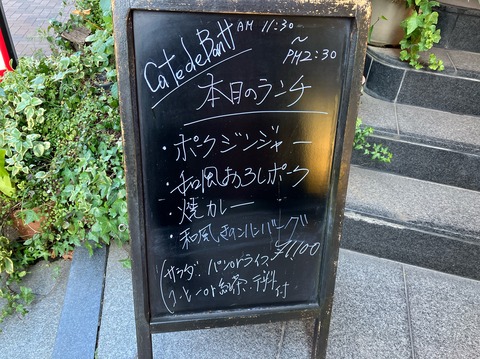 CafedeBant
AM 11:30
～
PM2:30
本日のランチ
・ポークジンジャー
・和風おろしポーク
・焼カレー
・和風きのこハンバーグ
¥1,100
(サラダ・パンorライス
コーヒーor紅茶・デザート付